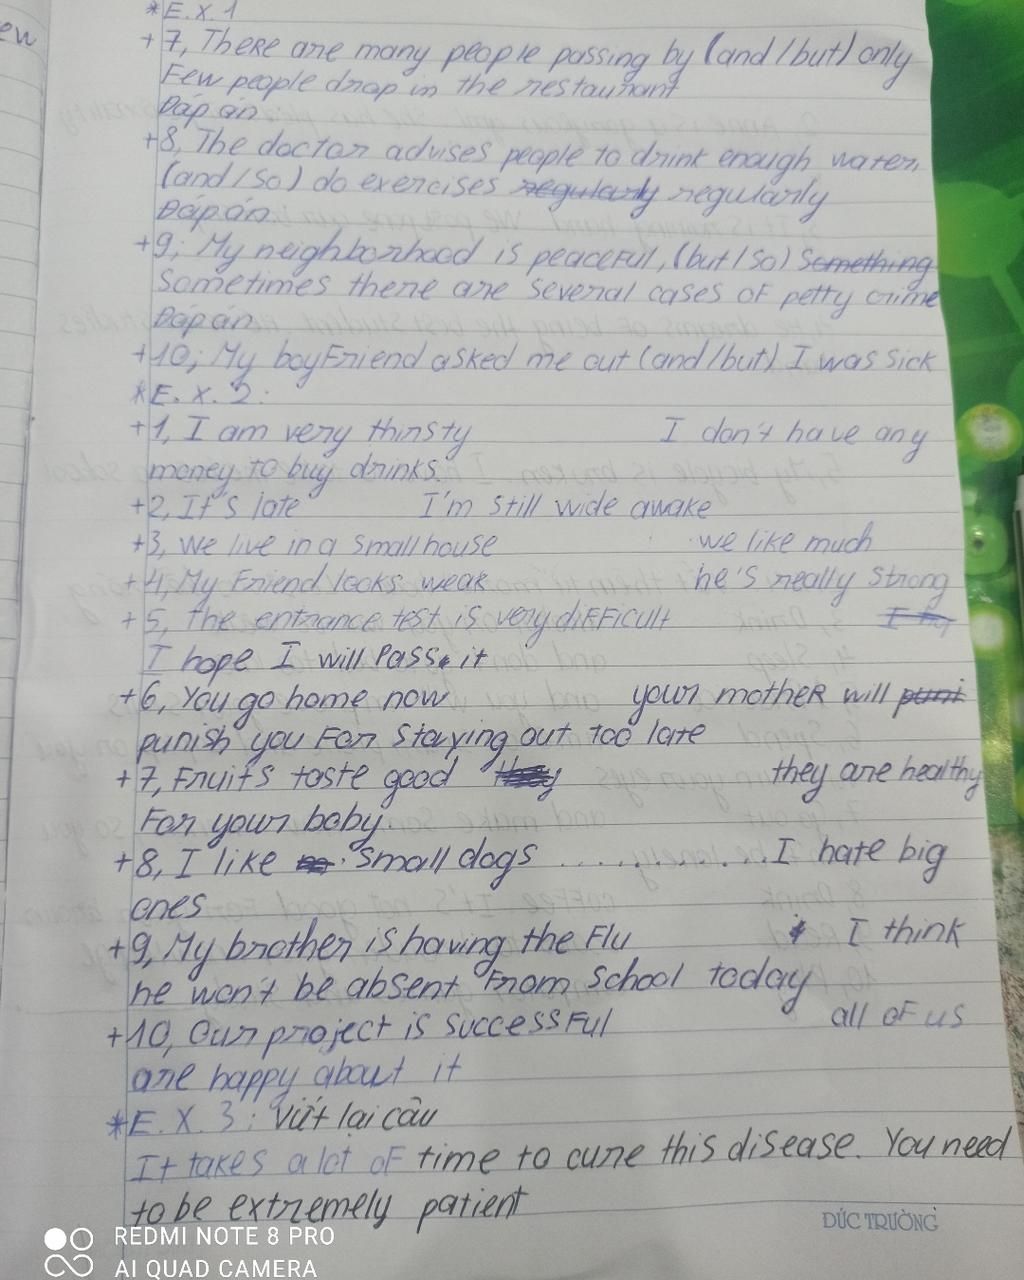 ew
*E.X.1
+7, There are many people passing by (and/but) only
Few people drop in the restauhant
Đáp án
+8, The doctor advises people to drink enough water,
(and/so) do exercises regularly regularly
Đáp án
+9; My neighborhood is peaceful, (but/so) Something
Sometimes there are several cases of petty crime
Đáp án
+10; My boyfriend asked me out (and/but) I was sick
*E.X.2:
+1, I am very thirsty I don't have any
money to buy drinks.
+2, It's late I'm still wide awake
+3, we live in a small house we like much
+4, My Friend looks weak he's really strong
+5, The entrance test is very difficult
I hope I will pass it
+6, You go home now your mother will puni
punish you for staying out too late
+7, Fruits taste good they are healthy
For your baby.
+8, I like small dogs ............ I hate big
ones
+9, My brother is having the Flu I think
he won't be absent from school today
+10, Our project is successful all of us
are happy about it
*E.X.3: Viết lại câu
It takes a lot of time to cure this disease. You need
to be extremely patient
ĐỨC TRƯỜNG
REDMI NOTE 8 PRO
AI QUAD CAMERA